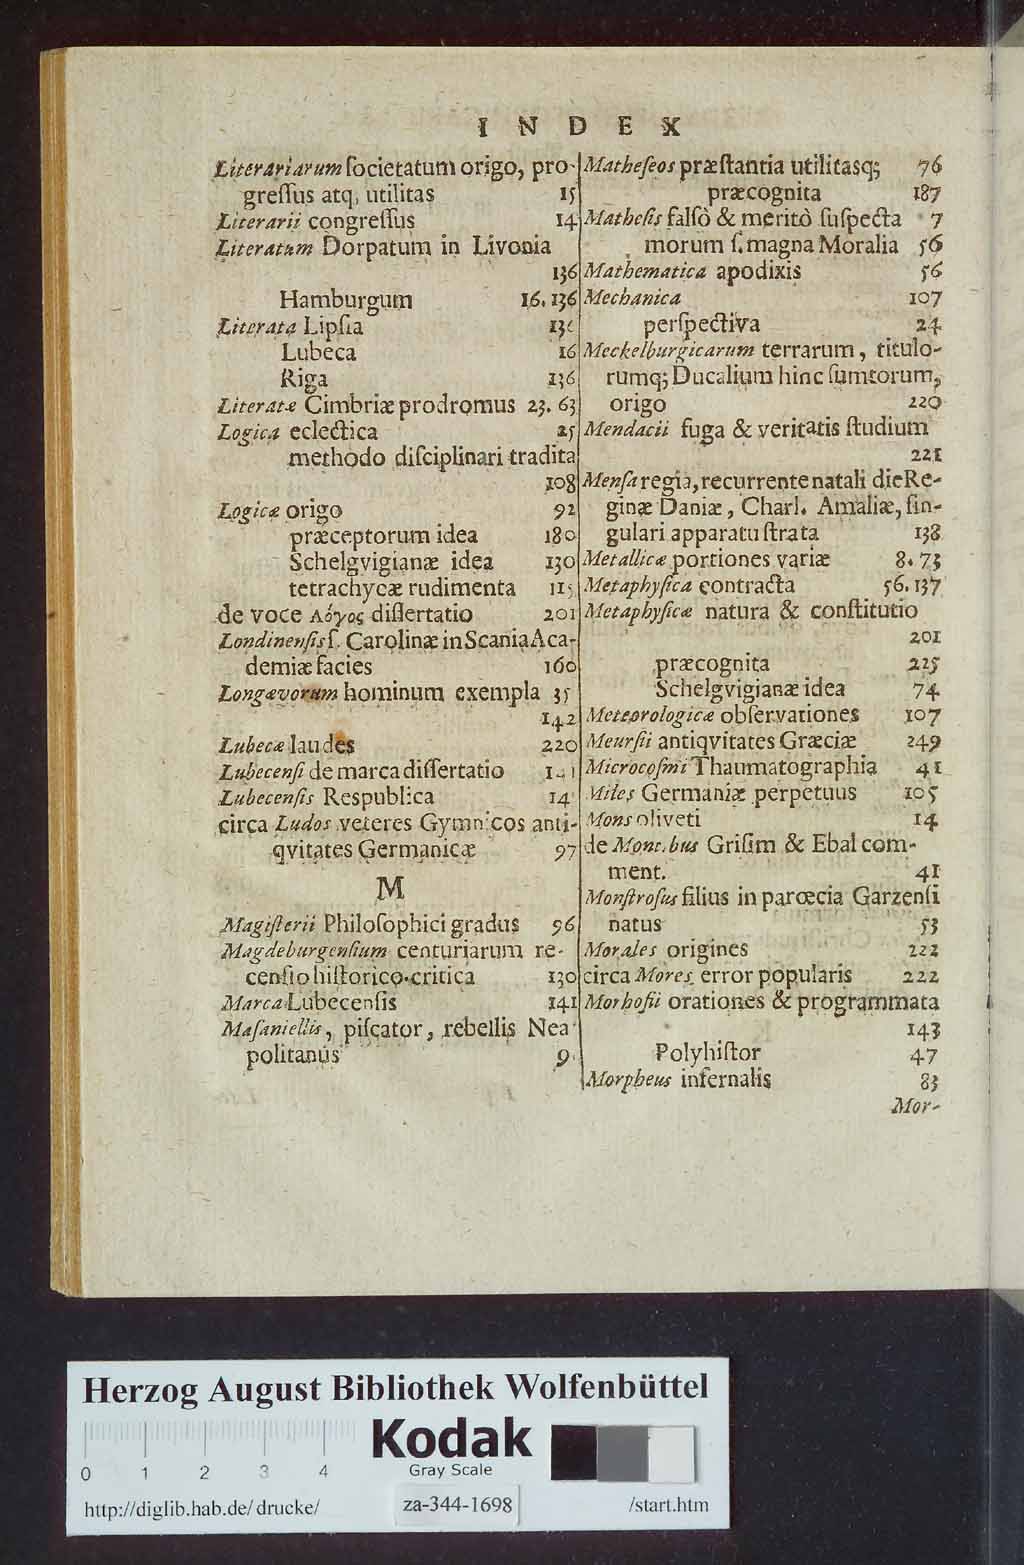 INDEX
Literariarum ſocietatum origo, pro-
greſſus atq; utilitas 15
Literarii congreſſus 14
Literatum Dorpatum in Livonia
136
Hamburgum 16. 136
Literata Lipſia 136
Lubeca 16
Riga 136
Literatæ Cimbriæ prodromus 23. 63
Logica eclectica 25
methodo diſciplinari tradita
108
Logicæ origo 92
præceptorum idea 180
Schelgvigianæ idea 130
tetrachycæ rudimenta 115
de voce Λόγος diſſertatio 201
Londinenſis ſ. Carolinæ in Scania Aca-
demiæ facies 160
Longævorum hominum exempla 35
142
Lubecæ laudes 220
Lubecenſi de marca diſſertatio 141
Lubecenſis Respublica 14
circa Ludos veteres Gymnicos anti-
qvitates Germanicæ 97
M
Magiſterii Philoſophici gradus 96
Magdeburgenſium centuriarum re-
cenſio hiſtorico-critica 130
Marca Lubecenſis 141
Maſaniellis, piſcator, rebellis Nea
politanus 9
Matheſeos præſtantia utilitasq; 76
præcognita 187
Matheſis falſò & meritò ſuſpecta 7
morum ſ. magna Moralia 56
Mathematica apodixis 56
Mechanica 107
perſpectiva 24
Meckelburgicarum terrarum, titulo-
rumq; Ducalium hinc ſumtorum,
origo 220
Mendacii fuga & veritatis ſtudium
221
Menſa regia, recurrente natali die Re-
ginæ Daniæ, Charl. Amaliæ, ſin-
gulari apparatu ſtrata 138
Metallicæ portiones variæ 8. 73
Metaphyſica contracta 56. 137
Metaphyſicæ natura & conſtitutio
201
præcognita 225
Schelgvigianæ idea 74
Meteorologicæ obſervationes 107
Meurſii antiqvitates Græciæ 249
Microcoſmi Thaumatographia 41
Miles Germaniæ perpetuus 105
Mons oliveti 14
de Montibus Griſim & Ebal com-
ment. 41
Monſtroſus filius in parœcia Garzenſi
natus 53
Morales origines 222
circa Mores error popularis 222
Morhofii orationes & programmata
143
Polyhiſtor 47
Morpheus infernalis 83
Mor-
Herzog August Bibliothek Wolfenbüttel
Kodak
Gray Scale
0 1 2 3 4
http://diglib.hab.de/drucke/ za-344-1698 /start.htm